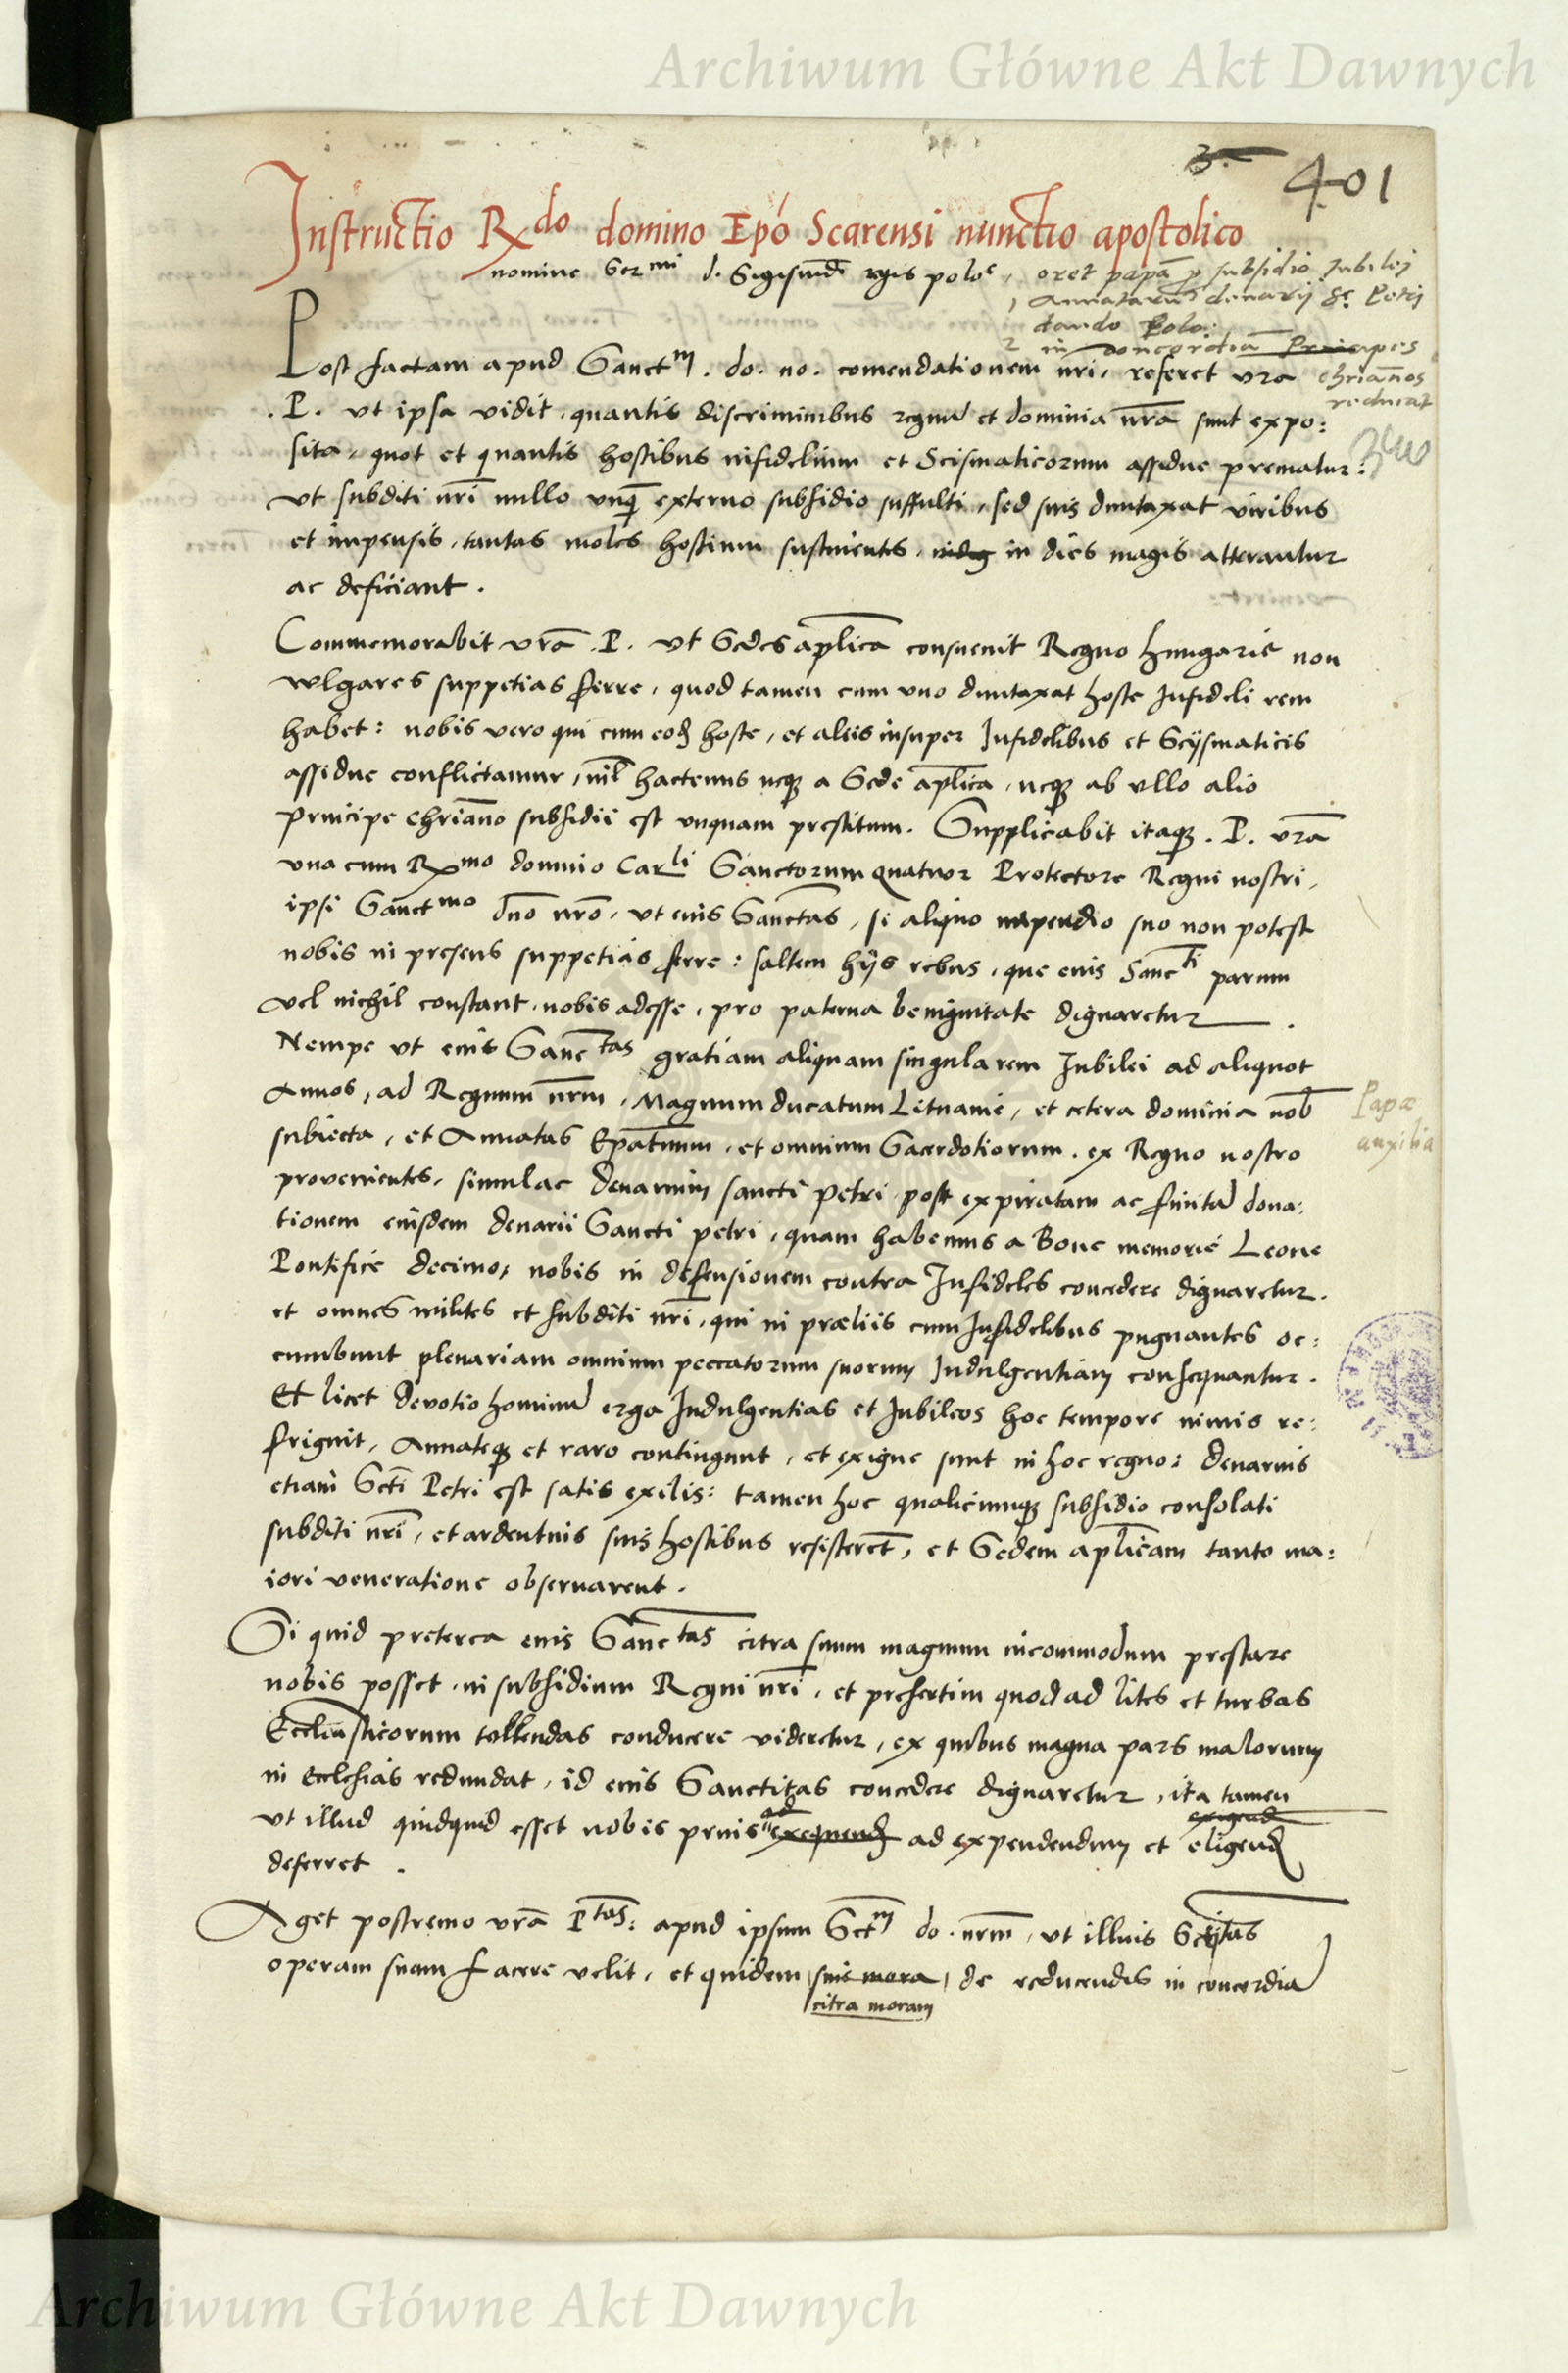 Archiwum Główne Akt Dawnych
3. 401
Instructio Rdo domino Epo Scarensi nunctio apostolico
nomine Sermi d. Sigismdi rgis polo, oret papã p subsidio Jubilej
1 Annatarũ denarij Sc Petri
dando Polo:
2 in concordiã Principes
Post factam apud Sanctm. do. no. comendationem nri, referet vra chriãnos
reducat
.P. vt ipsa vidit, quantis discriminibus regnũ et dominia nrã sunt expo:
sita, quot et quantis hostibus infidelium et Scismaticorum assidue prematur:
vt subditi nri nullo vnq externo subsidio suffulti, sed suis duntaxat viribus
et impensis, tantas moles hostium sustinentes, in dies magis atterantur
ac deficiant.
Commemorabit vrã .P. vt Sedes aplica consuevit Regno Hungarie non
vulgares suppetias ferre, quod tamen cum vno duntaxat hoste Infideli rem
habet: nobis vero qui cum eod hoste, et aliis insuper Infidelibus et Scysmaticis
assidue conflictamur, nil hactenus neq a Sede aplica, neq ab vllo alio
principe chriãno subsidii est vnquam prestitum. Supplicabit itaq .P. vrã
vna cum Rmo domino Carli Sanctorum quatuor Protectore Regni nostri,
ipsi Sanctmo dno nro, vt eius Sanctas, si aliquo impendio suo non potest
nobis in presens suppetias ferre: saltem hijs rebus, que eius Sancti parum
vel nichil constant, nobis adesse, pro paterna benignitate dignaretur.
Nempe vt eius Sanctas gratiam aliquam singularem Jubilei ad aliquot
Annos, ad Regnum nrm, Magnum ducatum Lituanie, et cetera dominia nob
subiecta, et Annatas Epatuum, et omnium Sacerdotiorum, ex Regno nostro
Papæ
auxilia
provenientes, simulac denarium sancti Petri post expiratam ac finitã dona:
tionem eiusdem denarii Sancti petri, quam habemus a Bone memorie Leone
Pontifice decimo, nobis in defensionem contra Infideles concedere dignaretur.
et omnes milites et subditi nri, qui in præliis cum Infidelibus pugnantes oc:
cumbunt plenariam omnium peccatorum suorum Indulgentiam consequantur.
Et licet devotio hominũ erga Indulgentias et Jubileos hoc tempore nimis re:
friguit, Annateq et raro contingunt, et exigue sunt in hoc regno: denarius
etiam Scti Petri est satis exilis: tamen hoc qualicumq subsidio consolati
subditi nri, et ardentius suis hostibus resisterent, et Sedem aplicam tanto ma:
iori veneratione observarent.
Si quid preterea eius Sanctas citra suum magnum incommodum prestare
nobis posset, in subsidium Regni nri, et presertim quod ad lites et turbas
Ecclesiasticorum tollendas conducere videretur, ex quibus magna pars malorum
in Ecclesias redundat, id eius Sanctitas concedere dignaretur, ita tamen
vt illud quidquid esset nobis prius ad exequend ad expendendum et exigend eligend
deferret.
Aget postremo vrã Ptas: apud ipsum Sctm do. nrm, vt illius Sctitas
operam suam facere velit, et quidem sine mora, de reducendis in concordiã
citra moram
Archiwum Główne Akt Dawnych